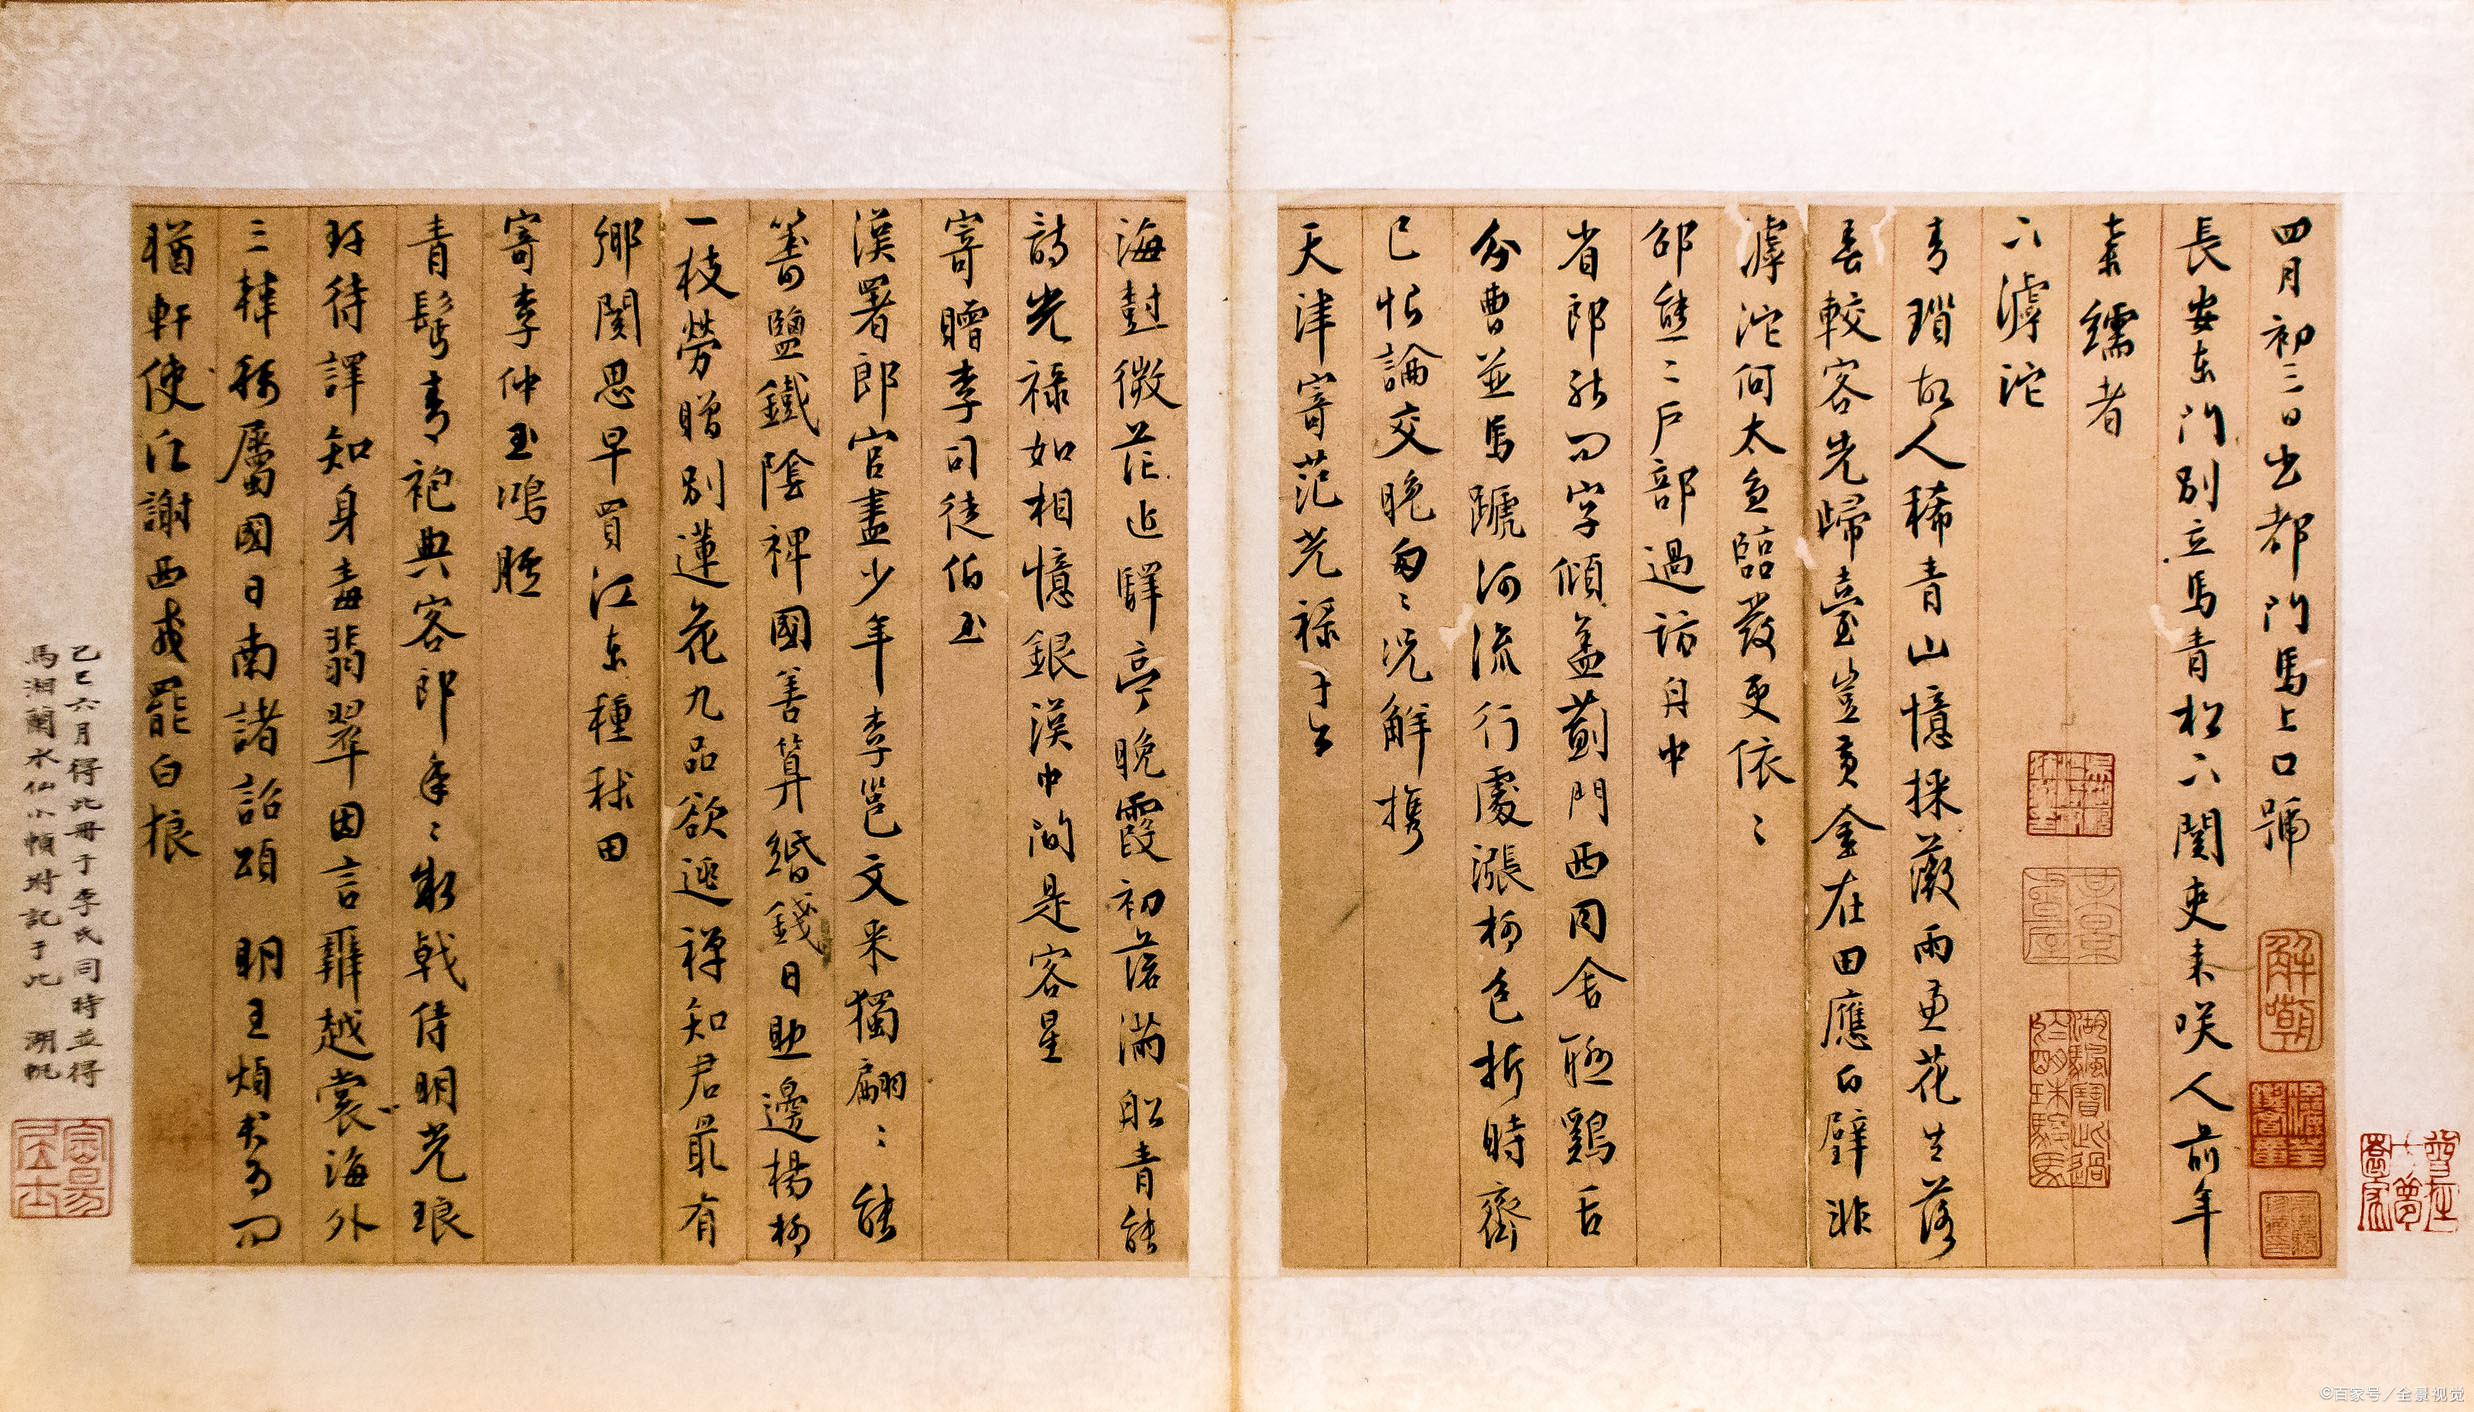 四月初三日出都門馬上口號
長安東門別立馬青松下關吏未笑人前年
素繻者
下滹沱
青瑣故人稀青山憶採薇雨邊花共落
春較客先歸臺豈黃金在田應白璧非
滹沱何太急臨發更依〻
邵熊二戶部過訪舟中
省郎能問字傾蓋薊門西同舍聽鷄舌
分曹並馬蹏河流行處漲柳色折時齊
已恨論交晚匆〻況解攜
天津寄范光祿
海對微茫近驛亭晚霞初落滿船青能
詩光祿如相憶銀漢中間是客星
寄贈李司徒伯玉
漢署郎官盡少年李邕文采獨翩〻能
籌鹽鐵陰裨國善算緡錢日助邊楊柳
一枝勞贈別蓮花九品欲逃禪知君最有
鄉關思早買江東種秫田
寄李仲玉鴻臚
青髩青袍典客郎年〻執戟侍明光琅
玕待譯知身毒翡翠因言辨越裳海外
三韓稱屬國日南諸詔頌明王煩君為問
猶軒使何謝西戎罷白狼
乙巳六月得此冊于李氏同時並得
馬湘蘭水仙小幀附記于此 湖帆
©百家号/全景视觉